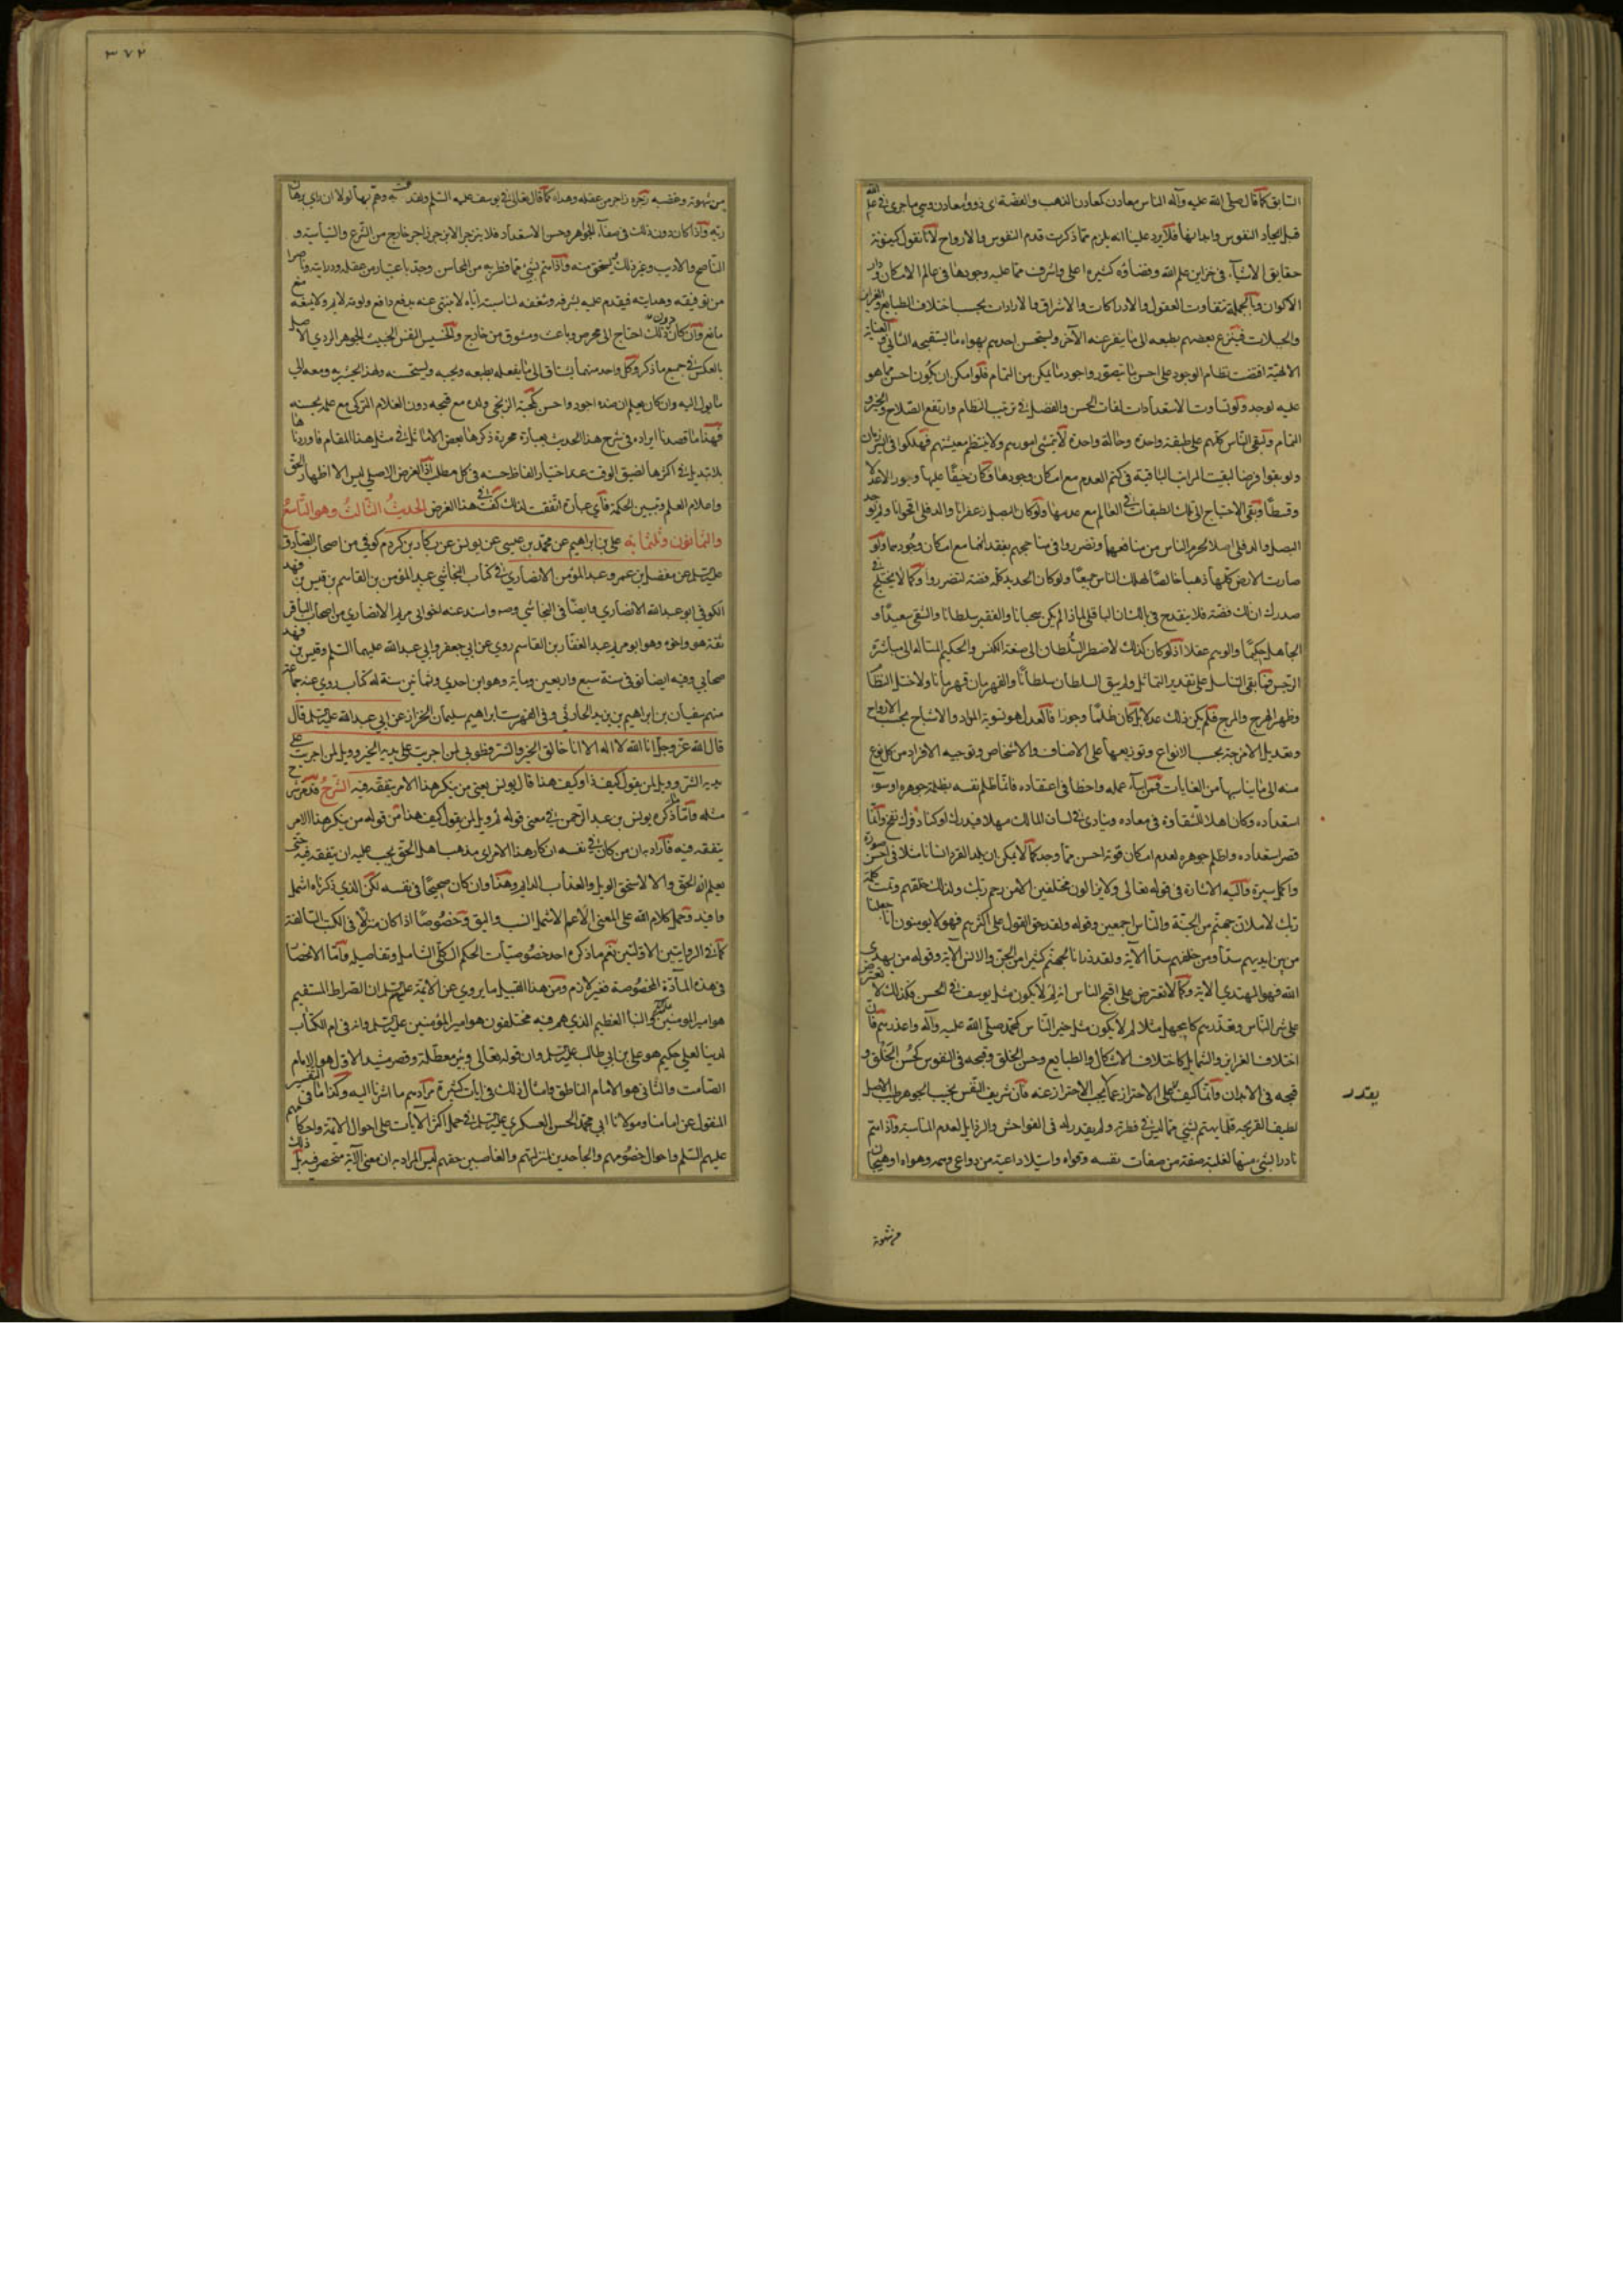 السابق كما قال صلى الله عليه وآله الناس معادن كمعادن الذهب والفضة اى ذووا معادن وهى ما جرى فى علم الله
قبل ايجاد النفوس وابدانها فلا يرد علينا انه يلزم مما ذكرت قدم النفوس والارواح لانا نقول كينونة
حقايق الاشياء فى خزاين علم الله وقضاؤه كثيرة اعلى واشرف مما عليه وجودها فى عالم الامكان ودار
الاكوان وبالجملة تفاوت العقول والادراكات والاشراق والارادات بحسب اختلاف الطبايع والغرايز
والجبلات فينزع بعضهم بطبعه الى ما ينفر عنه الآخر ويستحسن احدهم بهواه ما يستقبحه الثانى والعناية
الالهية اقتضت نظام الوجود على احسن ما يتصور واجود ما يمكن من التمام فلو امكن ان يكون احسن مما هو
عليه لوجد ولو تساوت الاستعدادات لفات الحسن والفضل فى ترتيب النظام وارتفع الصلاح والخير و
التمام ولبقى الناس كلهم على طبقة واحدة وحالة واحدة لا يتمشى امورهم ولا ينتظم معيشتهم فهلكوا فى اسرع زمان
ولو بقوا فرضا لبقيت المراتب الباقية فى كتم العدم مع امكان وجودها فكان حيفا عليها وجورا لا عدلا
وقسطا وبقى الاحتياج الى تلك الطبقات فى العالم مع عدمها ولو كان البصل زعفرانا والدفلى اقحوانا ولم يوجد
البصل والدفلى اصلا لحرم الناس من منافعهما وتضرروا فى مناجحهم بفقدانهما مع امكان وجودهما ولو
صارت الارض كلها ذهبا خالصا لهلك الناس جميعا ولو كان الحديد كله فضة لتضرروا وكما لا يختلج فى
صدرك ان لك فضة فلا ينقدح فى بالك ان الباقلى لماذا لم يكن سحبانا والفقير سلطانا والشقى سعيدا و
الجاهل حكيما والوهم عقلا اذ لو كان كذلك لاضطر السلطان الى صنعة الكنس والحكيم المتاله الى مباشرة
الرجس فما بقى التناسل على تقدير التماثل ولم يبق السلطان سلطانا والقهرمان قهرمانا ولاختل النظام
وظهر الهرج والمرج فلم يكن ذلك عدلا بل كان ظلما وجورا فالعدل هو تسوية المواد والاشباح بحسب الارواح
وتعديل الامزجة بحسب الانواع وتوزيعها على الاصناف والاشخاص وتوجيه الافراد من كل نوع
منه الى ما يناسبها من الغايات فمن اساء عمله واخطا فى اعتقاده فانما ظلم نفسه بظلمة جوهره او سوء
استعداده وكان اهلا للشقاوة فى معاده وينادى فى لسان المالك مهلا فيداك اوكتا وفوك نفخ وانما
قصر استعداده واظلم جوهره لعدم امكان قوة احسن مما وجد كما لا يمكن ان يلد القرد انسانا مثلا فى احسن صورة
واكمل سيرة واليه الاشارة فى قوله تعالى ولا يزالون مختلفين الا من رحم ربك ولذلك خلقهم وتمت كلمة
ربك لاملان جهنم من الجنة والناس اجمعين وقوله ولقد حق القول على اكثرهم فهم لا يومنون انا جعلنا
من بين ايديهم سدا ومن خلفهم سدا الآية ولقد ذرانا لجهنم كثيرا من الجن والانس الآية وقوله من يهدى
الله فهو المهتدى الاية وكما لا نعترض على اقبح الناس انه لم لا يكون مثل يوسف فى الحسن فكذلك لا نعترض
على شر الناس وتعذرهم كابى جهل مثلا لم لا يكون مثل خير الناس كمحمد صلى الله عليه وآله واعذرهم فان
اختلاف الغرايز والشمايل كاختلاف الاشكال والطبايع وحسن الخلق وقبحه فى النفوس كحسن الخلق و
قبحه فى الابدان وانما كيف على الاحتراز عما يجب الاحتراز عنه فان شريف النفس نجيب الجوهر طيب الاصل
لطيف القريحة قلما يهتم بشئ مما ليس فى فطرته ولم يقدر له فى الفواحش والرذايل لعدم المناسبة واذا اهتم
نادرا بشئ منها لغلبة صفة من صفات نفسه وقواه واستيلاء داعية من دواعى وهمه وهواه او هيجان
يقدر
من شهوة
٣٧٢
من شهوته وغضبه زجره زاجر من عقله وهداه كما قال تعالى فى يوسف عليه السلم ولقد همت به وهم بها لولا ان راى برهان
ربه واذا كان دون ذلك فى صفاء الجواهر وحسن الاستعداد فلا ينزجر الا بزجر زاجر خارج من الشرع والسياسة و
الناصح والاديب وغير ذلك يستحق منه واذا اهتم بشئ مما فطر به من المحاسن وجد باعتبار من عقله ودرايته وناصرا
من توفيقه وهدايته فيقدم عليه لشرفه وشغفه لمناسبته اياه لا ينتهى عنه بدفع دافع ولومة لايم ولا يمنعه منع
مانع وان كان دون ذلك احتاج الى محرص وباعث ومشوق من خارج والخسيس النفس الخبيث الجوهر الردى الاصل
بالعكس فى جميع ما ذكر وكل واحد منهما يشتاق الى ما يفعله بطبعه ويحبه ويستحسنه ولهذا يجسر به ومعه الى
ما يول اليه وان كان يعلم ان ضده اجود واحسن كمحبة الزنجى ولده مع قبحه دون الغلام التركى مع علمه بحسنه
فهذا ما قصدنا ايراده فى شرح هذا الحديث بعبارة محررة ذكرها بعض الاماثل فى مثل هذا المقام فاوردناها
بلا تبديل فى اكثرها لضيق الوقت عند اختيار الفاظ حسنه فى كل مطلب اذ الغرض الاصلى ليس الا اظهار الحق
واعلام العلم وتبيين الحكمة فاى عبارة اتفقت لذلك كفت فى هذا الغرض الحديث الثالث وهو التاسع
والثمانون وثلثمايه على بن ابراهيم عن محمد بن عيسى عن يونس عن بكار بن كردم كوفى من اصحاب الصادق
عليه السلم عن مفضل بن عمرو عبد المؤمن الانصارى فى كتاب النجاشى عبد المؤمن بن القاسم بن قيس بن قهد
الكوفى ابو عبد الله الانصارى وايضا فى النجاشى وصه واسند عنه اخو ابى مريم الانصارى من اصحاب الباقر
ثقة هو واخوه وهو ابو مريم عبد الغفار بن القاسم روى عن ابى جعفر وابى عبد الله عليهما السلم وقيس بن قهد
صحابى وفيه ايضا توفى سنة سبع واربعين ومايه وهو ابن احدى وثمانين سنة له كتاب روى عنه جماعة
منهم سفيان بن ابراهيم بن يزيد الحارثى وفى الفهرست ابراهيم سليمان الخزاز عن ابى عبد الله عليه السلم قال
قال الله عز وجل انا الله لا اله الا انا خالق الخير والشر فطوبى لمن اجريت على يديه الخير وويل لمن اجريت على
يديه الشر وويل لمن يقول كيف ذا وكيف هذا قال يونس يعنى من ينكر هذا الامر يتفقه فيه الشرح قد مر شرح
مثله واما ما ذكره يونس بن عبد الرحمن فى معنى قوله وويل لمن يقول كيف هذا من قوله من ينكر هذا الامر
يتفقه فيه فاراد به ان من كان فى نفسه انكار هذا الامر اى مذهب اهل الحق يجب عليه ان يتفقه فيه حتى
يعلم انه الحق والا لاستحق الويل والعذاب الدايم وهذا وان كان صحيحا فى نفسه لكن الذى ذكرناه اشمل
وافيد وحمل كلام الله على المعنى الاعم الاشمل انسب واليق وخصوصا اذا كان منزلا فى الكتب السالفة
كما فى الروايتين الاولتين نعم ما ذكره احد خصوصيات الحكم الكلى الشامل وتفاصيله واما الانحصار
فى هذه المادة المخصوصة فغير لازم ومن هذا القبيل ما يروى عن الائمة عليهم السلم ان الصراط المستقيم
هو امير المومنين والنبأ العظيم الذى هم فيه مختلفون هو امير المؤمنين عليه السلم وانه فى ام الكتاب
لدينا لعلى حكيم هو على بن ابى طالب عليه السلم وان قوله تعالى وبئر معطلة وقصر مشيد الاول هو الامام
الصامت والثانى هو الامام الناطق وامثال ذلك فى ايات كثيرة مرادهم ما اشرنا اليه وكذا ما فى التفسير
المنقول عن امامنا ومولانا ابى محمد الحسن العسكرى عليه السلم فى حمل اكثر الآيات على احوال الائمة واحكامهم
عليهم السلم واحوال خصومهم والجاحدين لمنزلتهم والغاصبين حقهم ليس المراد به ان معنى الآية منحصر فيه بل ذلك